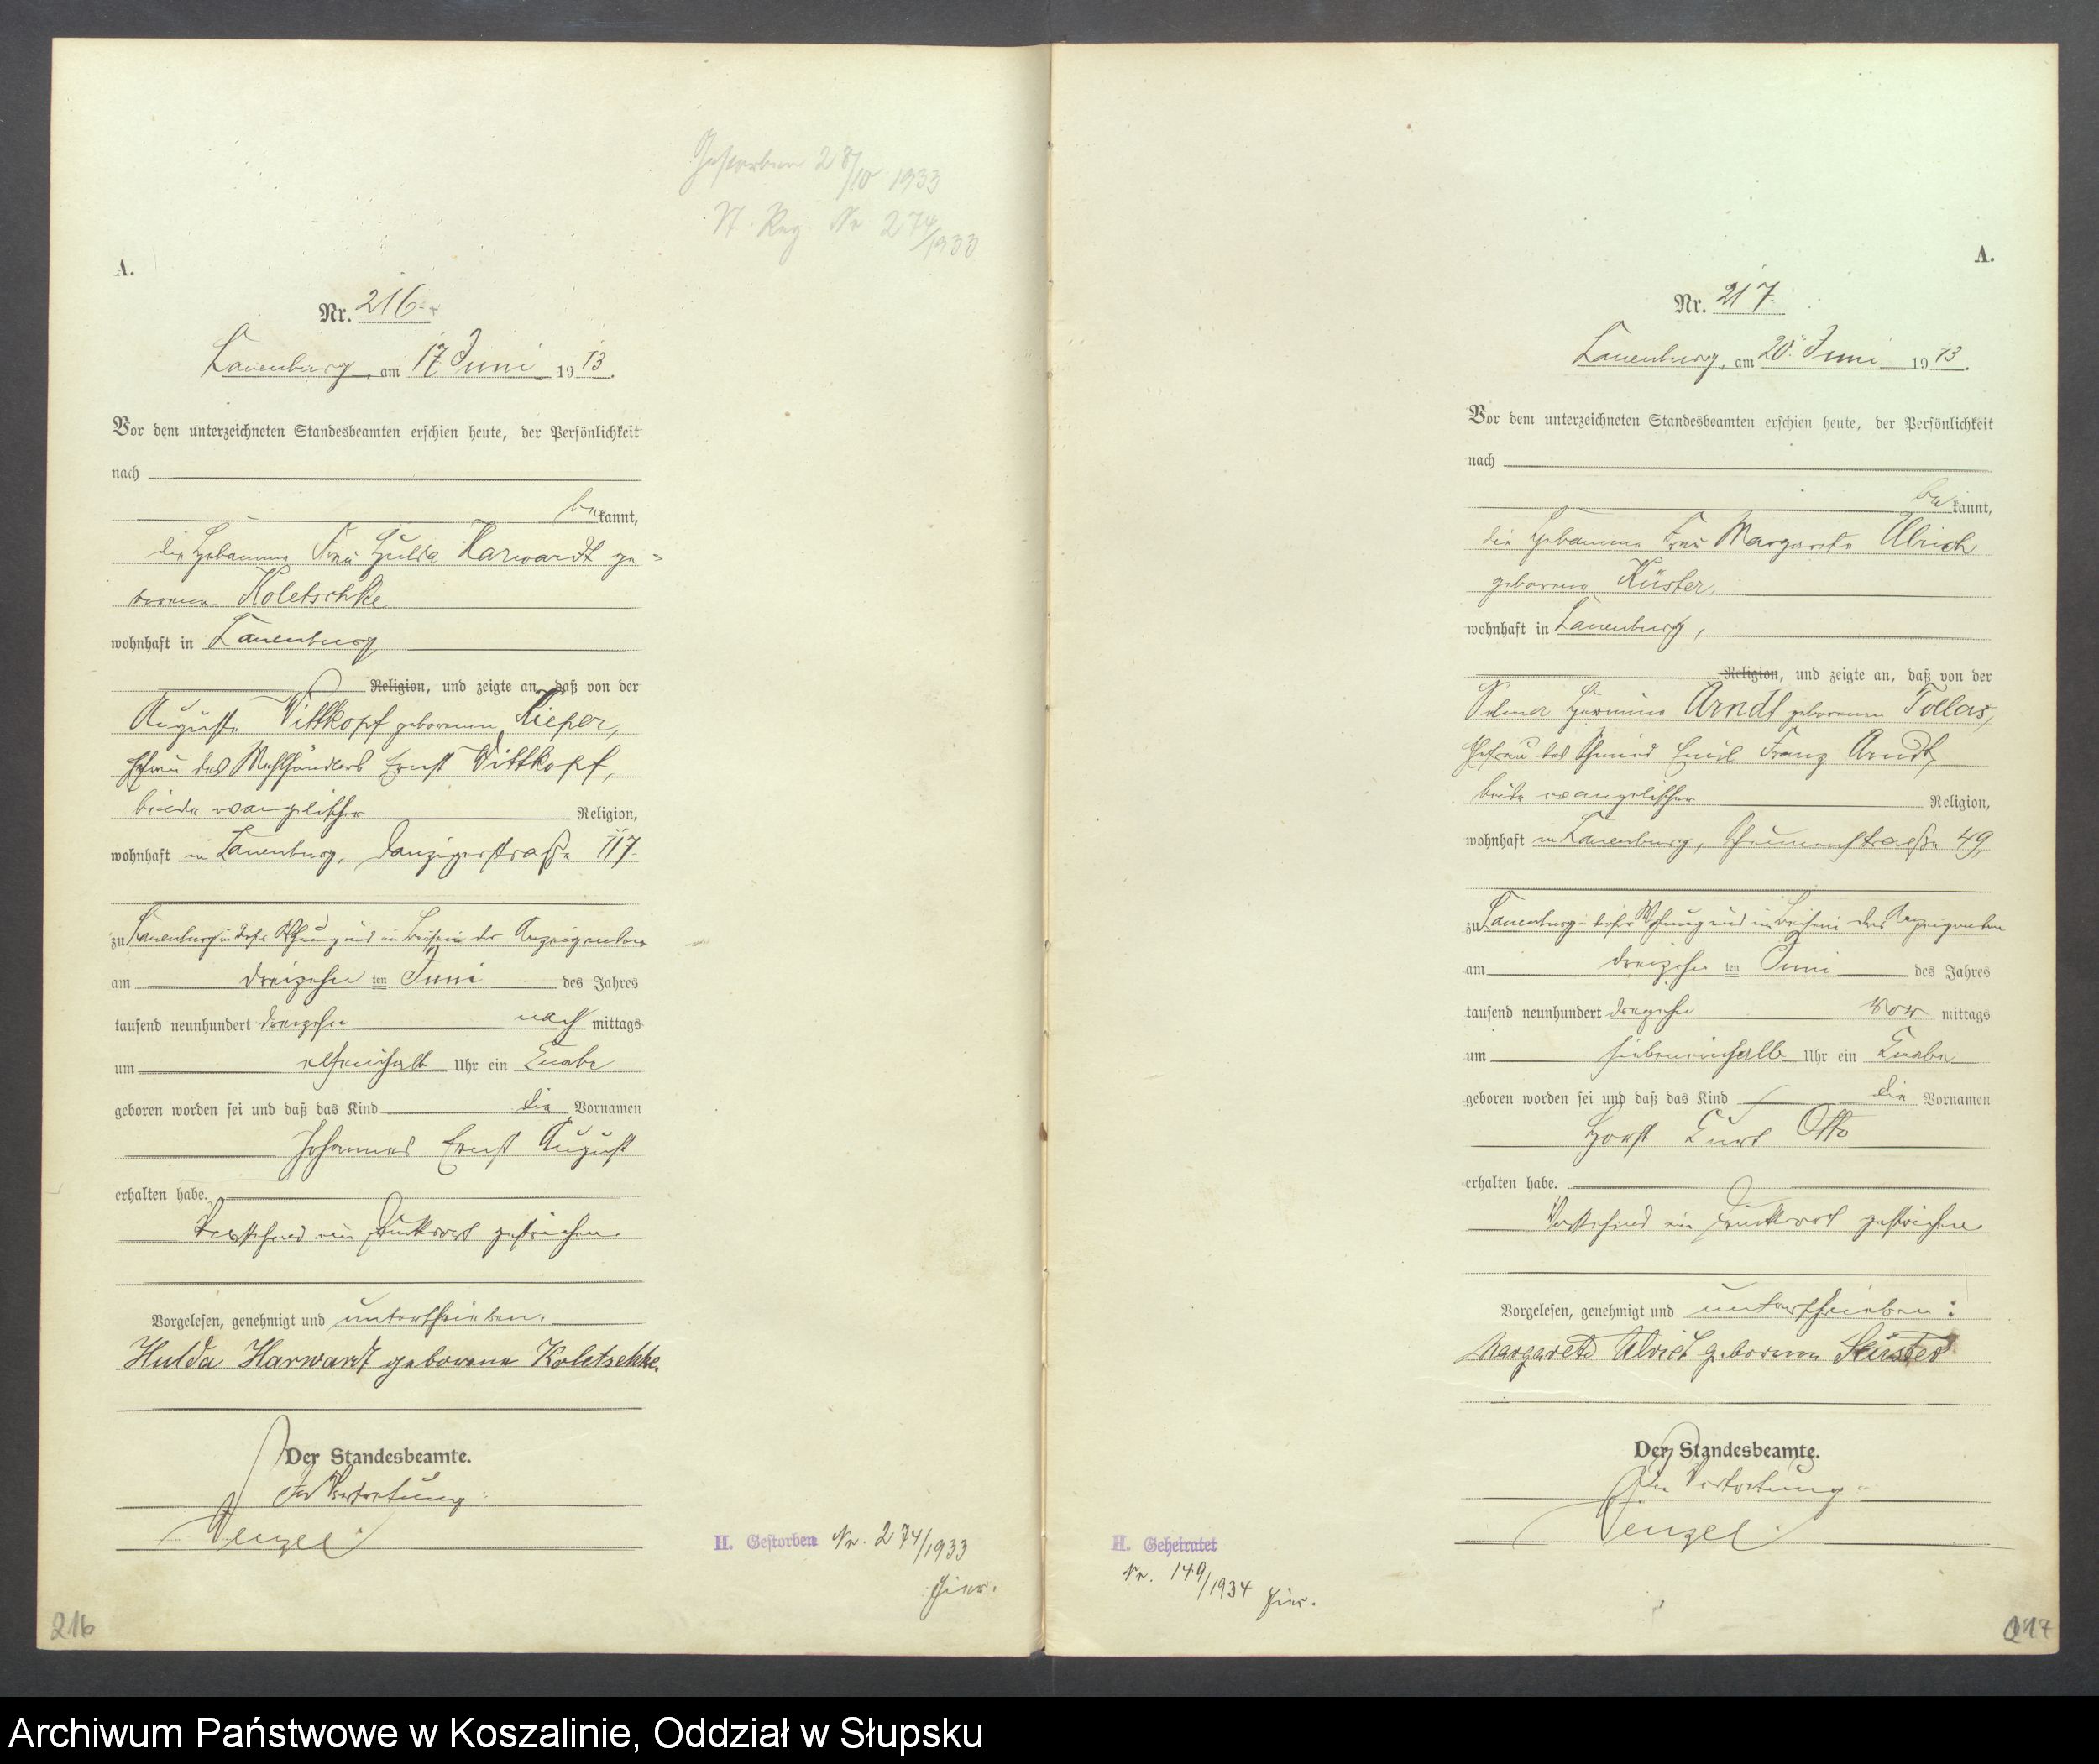 Gestorben 28/10 1933
St. Reg. Nr 274/1933
A.
Nr. 216
Lauenburg, am 17 Juni 1913.
Vor dem unterzeichneten Standesbeamten erschien heute, der Persönlichkeit
nach
bekannt,
die Hebamme Frau Hulda Harwardt ge=
borene Koletschke
wohnhaft in Lauenburg
Religion, und zeigte an, daß von der
Auguste Vittkopf geborenen Kieper,
Ehefrau des Mehlhändlers Ernst Vittkopf,
beide evangelischer Religion,
wohnhaft in Lauenburg, Danzigerstraße 117
zu Lauenburg in dieser Wohnung und in Beisein der Anzeigenden
am dreizehnten Juni des Jahres
tausend neunhundert dreizehn nachmittags
um elfeinhalb Uhr ein Knabe
geboren worden sei und daß das Kind die Vornamen
Johannes Ernst August
erhalten habe.
Vorstehend ein Druckwort gestrichen.
Vorgelesen, genehmigt und unterschrieben.
Hulda Harwardt geborene Koletschke.
Der Standesbeamte.
In Vertretung:
Wenzel.
H. Gestorben Nr. 274/1933
hier.
216
A.
Nr. 217
Lauenburg, am 20. Juni 1913.
Vor dem unterzeichneten Standesbeamten erschien heute, der Persönlichkeit
nach
bekannt,
die Hebamme Frau Margarete Ulrich
geborene Küster,
wohnhaft in Lauenburg,
Religion, und zeigte an, daß von der
Selma Hermine Arndt geborenen Tollas,
Ehefrau des Schmied Emil Franz Arndt,
beide evangelischer Religion,
wohnhaft in Lauenburg, 49,
zu Lauenburg in dieser Wohnung und in Beisein der Anzeigenden
am dreizehnten Juni des Jahres
tausend neunhundert dreizehn vormittags
um siebeneinhalb Uhr ein Knabe
geboren worden sei und daß das Kind die Vornamen
Horst Kurt Otto
erhalten habe.
Vorstehend ein Druckwort gestrichen.
Vorgelesen, genehmigt und unterschrieben:
Margarete Ulrich geborene Küster
Der Standesbeamte.
In Vertretung:
Wenzel.
H. Geheiratet
Nr. 149/1934 hier.
217
Archiwum Państwowe w Koszalinie, Oddział w Słupsku